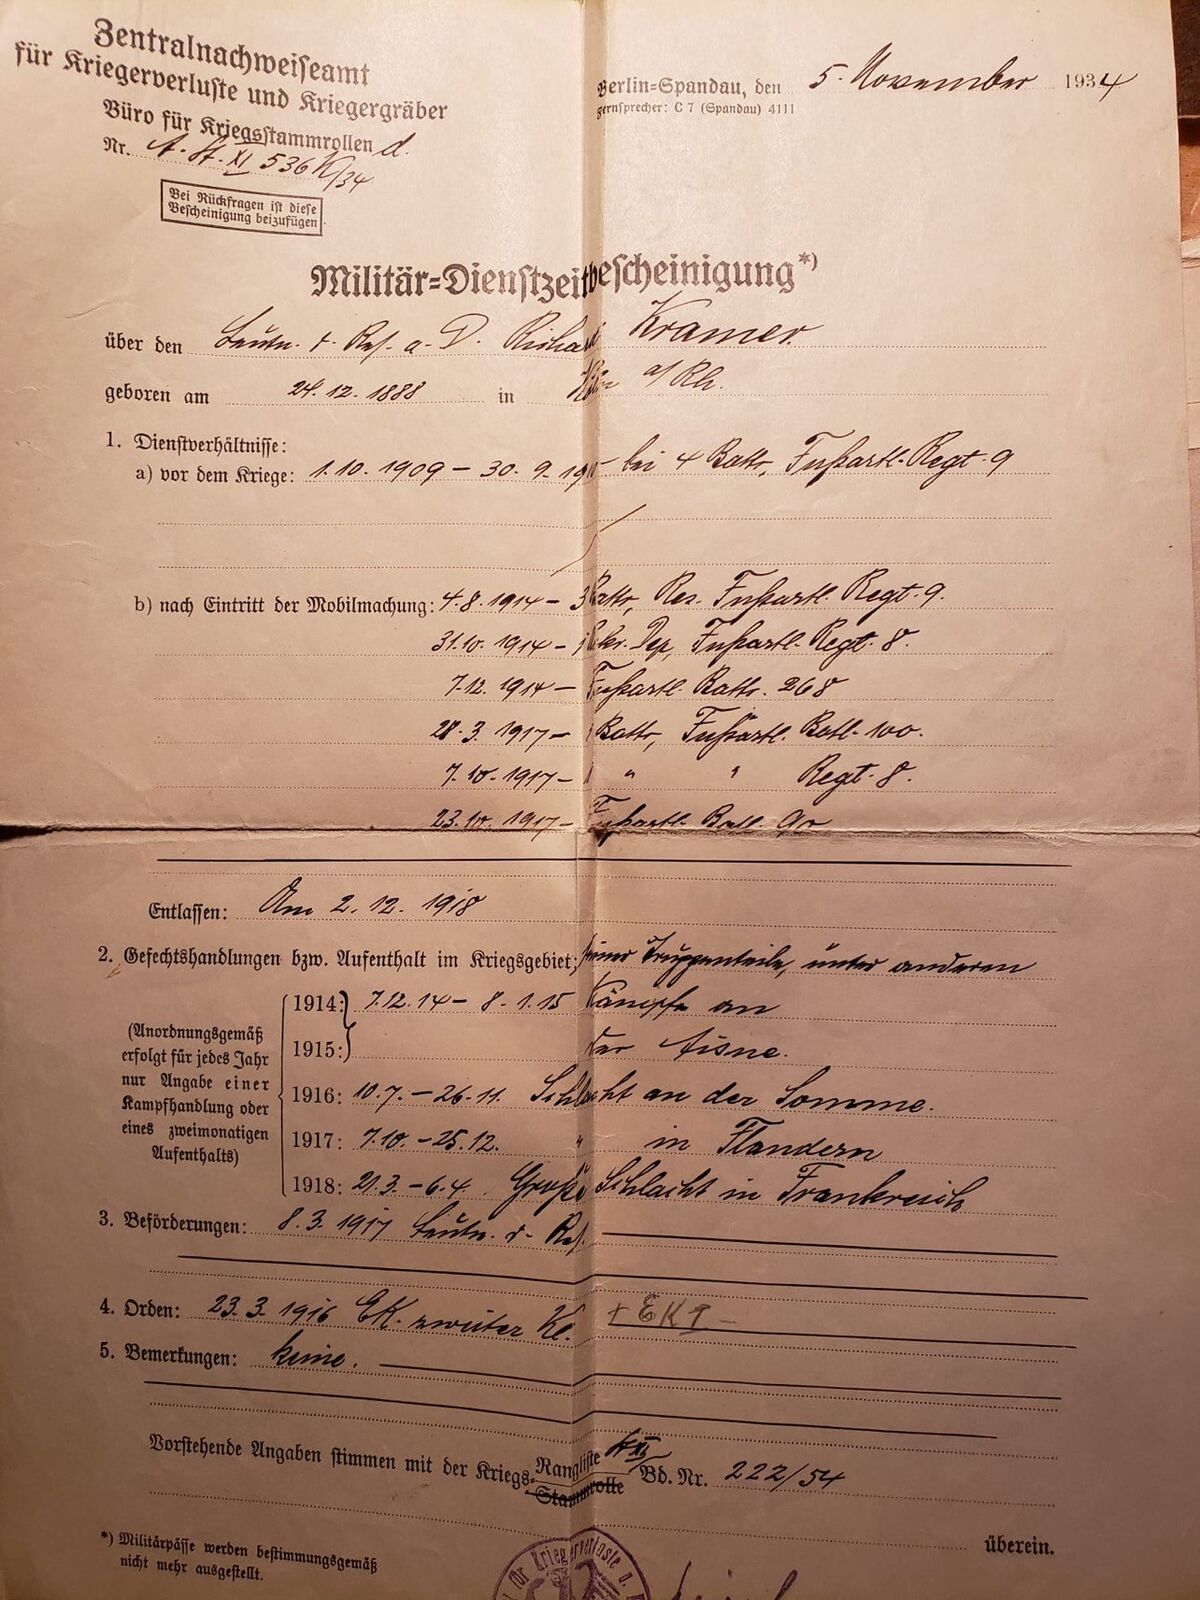 Zentralnachweiseamt
für Kriegerverluste und Kriegergräber
Büro für Kriegsstammrollen d.
Nr. A. St. XI 536 K/34
Bei Rückfragen ist diese
Bescheinigung beizufügen
Berlin=Spandau, den 5. November 1934
Fernsprecher: C 7 (Spandau) 4111
Militär=Dienstzeitbescheinigung*)
über den Leutn. d. Res. a. D. Richard Kramer
geboren am 24. 12. 1888 in Köln a/Rh.
1. Dienstverhältnisse:
a) vor dem Kriege: 1. 10. 1909 – 30. 9. bei 4 Battr, Fußartl. Regt. 9
b) nach Eintritt der Mobilmachung: 4. 8. 1914 – 3 Battr, Res. Fußartl. Regt. 9.
31. 10. 1914 – Dep, Fußartl. Regt. 8.
7. 12. 1914 – Fußartl. Battr. 268
28. 3. 1917 – Battr, Fußartl. Batl. 100.
7. 10. 1917 – " " Regt. 8.
23. 10. 1917 – Fußartl. Batl. 90
Entlassen: Am 2. 12. 1918
2. Gefechtshandlungen bzw. Aufenthalt im Kriegsgebiet; seiner Truppenteile, unter anderen
(Anordnungsgemäß
erfolgt für jedes Jahr
nur Angabe einer
Kampfhandlung oder
eines zweimonatigen
Aufenthalts)
1914: 7. 12. 14 – 8. 1. 15 Kämpfe an
1915: der Aisne.
1916: 10. 7. – 26. 11. Schlacht an der Somme.
1917: 7. 10. – 25. 12. " in Flandern
1918: 21. 3. – 6. 4. Große Schlacht in Frankreich
3. Beförderungen: 8. 3. 1917 Leutn. d. Res.
4. Orden: 23. 3. 1916 EK. zweiter Kl. + EK I –
5. Bemerkungen: keine.
Vorstehende Angaben stimmen mit der Kriegs= Rangliste XI Bd. Nr. 222/54
Stammrolle
überein.
*) Militärpässe werden bestimmungsgemäß
nicht mehr ausgestellt.
für Kriegerverluste u.